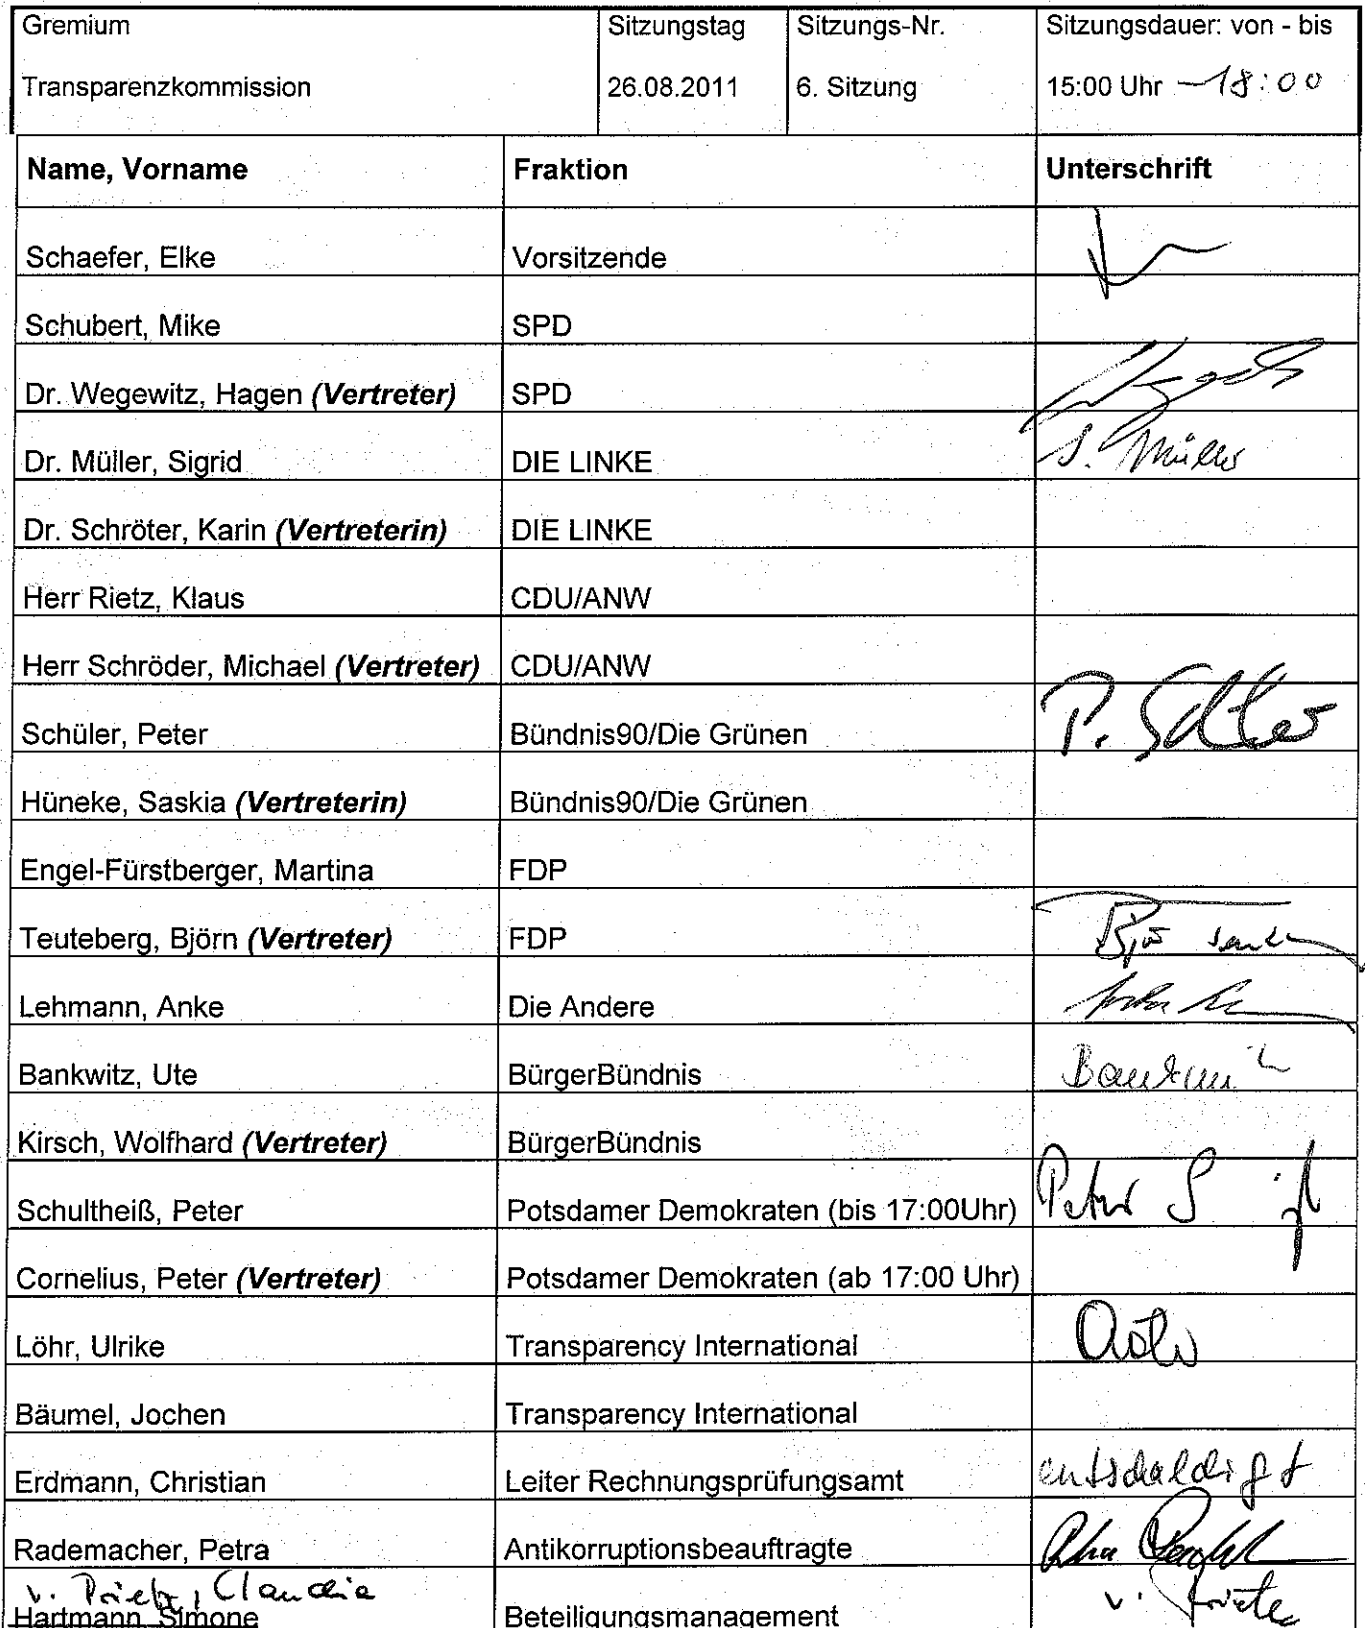 Gremium Sitzungstag Sitzungs-Nr. Sitzungsdauer: von - bis
Transparenzkommission 26.08.2011 6. Sitzung 15:00 Uhr – 18:00
Name, Vorname Fraktion Unterschrift
Schaefer, Elke Vorsitzende
Schubert, Mike SPD
Dr. Wegewitz, Hagen (Vertreter) SPD
Dr. Müller, Sigrid DIE LINKE S. Müller
Dr. Schröter, Karin (Vertreterin) DIE LINKE
Herr Rietz, Klaus CDU/ANW
Herr Schröder, Michael (Vertreter) CDU/ANW
Schüler, Peter Bündnis90/Die Grünen P.
Hüneke, Saskia (Vertreterin) Bündnis90/Die Grünen
Engel-Fürstberger, Martina FDP
Teuteberg, Björn (Vertreter) FDP
Lehmann, Anke Die Andere
Bankwitz, Ute BürgerBündnis
Kirsch, Wolfhard (Vertreter) BürgerBündnis
Schultheiß, Peter Potsdamer Demokraten (bis 17:00Uhr) Peter S
Cornelius, Peter (Vertreter) Potsdamer Demokraten (ab 17:00 Uhr)
Löhr, Ulrike Transparency International
Bäumel, Jochen Transparency International
Erdmann, Christian Leiter Rechnungsprüfungsamt entschuldigt
Rademacher, Petra Antikorruptionsbeauftragte
v. Claudia
Hartmann, Simone Beteiligungsmanagement v.